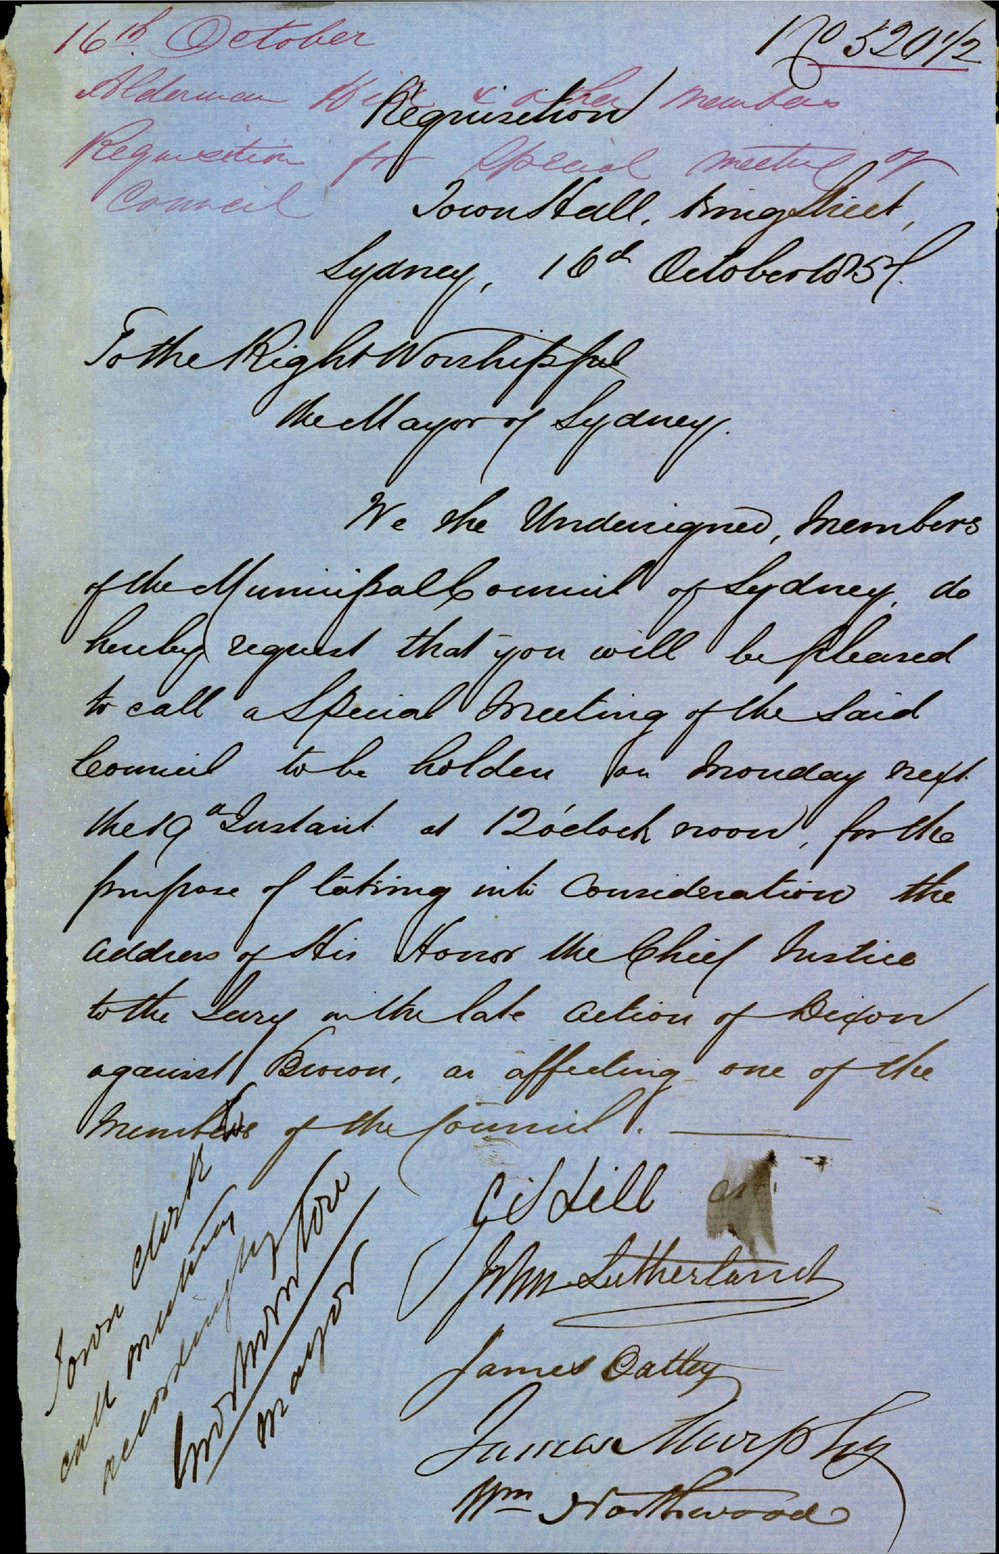 16th October
No 520 1/2
Alderman Hill & other members
Requisition for Special meeting of
Council
Requisition
Town Hall, King Street,
Sydney, 16th October 1857.
To the Right Worshipful
the Mayor of Sydney.
We the Undersigned, Members
of the Municipal Council of Sydney, do
hereby request that you will be pleased
to call a Special Meeting of the said
Council to be holden on Monday next
the 19th Instant at 12 o'clock noon, for the
purpose of taking into Consideration the
address of His Honor the Chief Justice
to the Jury in the late action of Dixon
against Brown, as affecting one of the
members of the Council.
G Hill
John Sutherland
James Oatley
James Murphy
Wm Northwood
Town Clerk
call meeting
accordingly for
Mayor